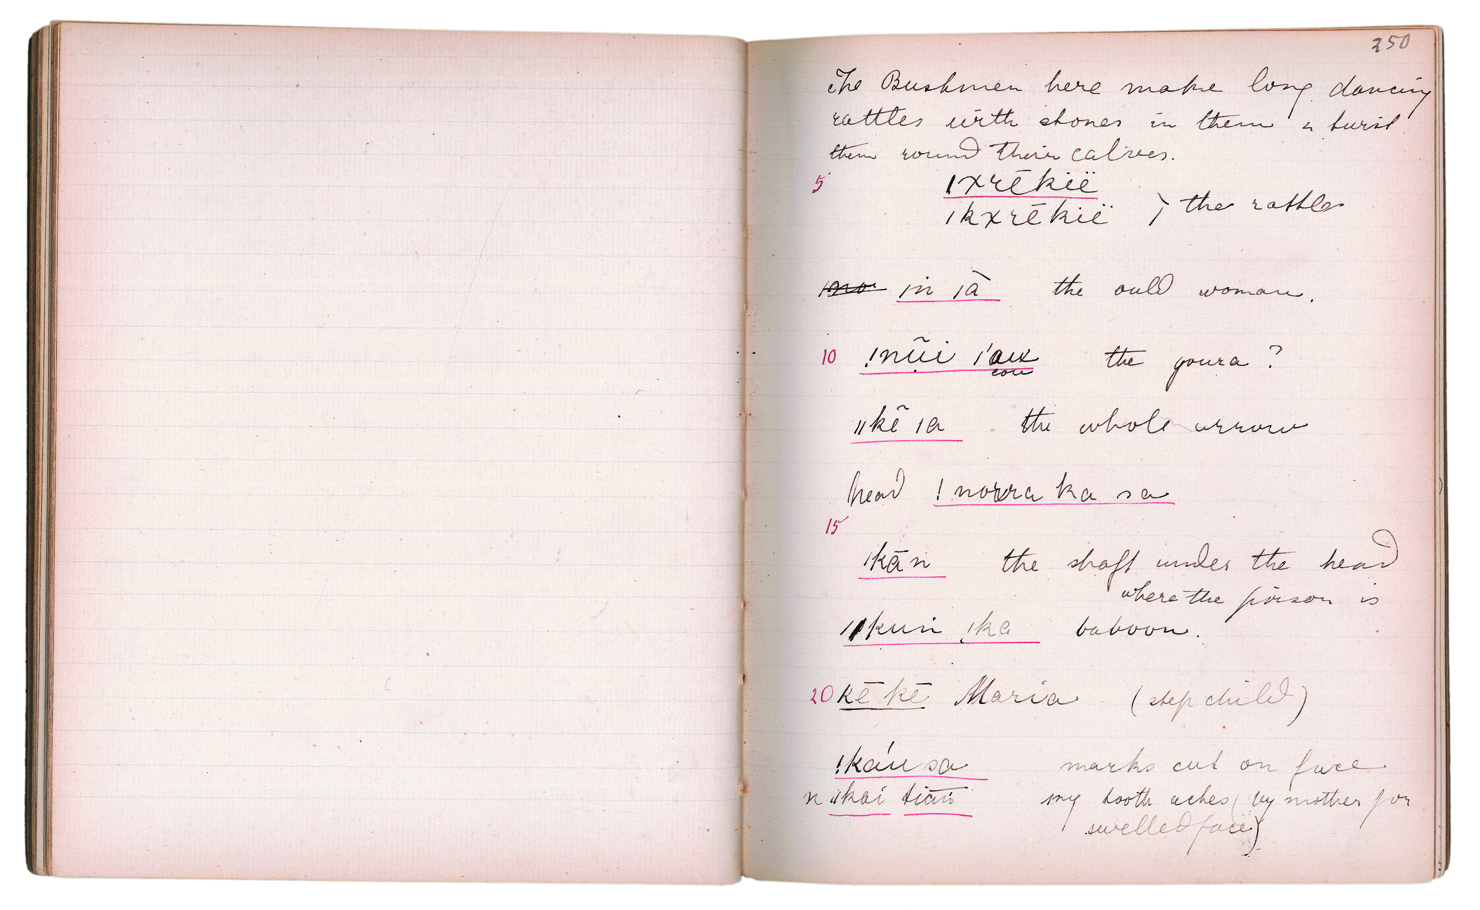 250
The Bushmen here make long dancing
rattles with stones in them & twist
them round their calves.
5 ǀxrēkïë
ǀkxrēkïë } the rattle
ǀn ǀā the ould woman.
10 !nũi ǀ'aux the goura?
cou
ǁkẽ ǀa the whole arrow
head !norra ka sa
15
ǀkān the shaft under the head
where the poison is
ǁkun ǀka baboon.
20 kē kē Maria (step child)
!káu sa marks cut on face
n ǁkai tīān my tooth aches (by mother for
swelled face)